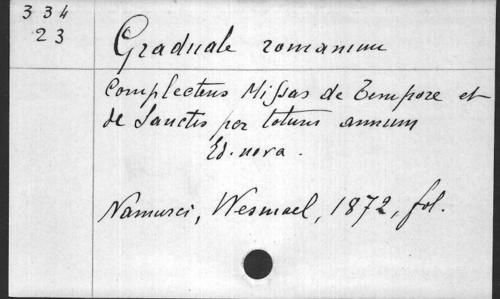 334
23
Graduale romanum
complectens Missas de Tempore et
de Sanctis per totum annum
Ed. nova.
Namurci, Wesmael, 1872, fol.